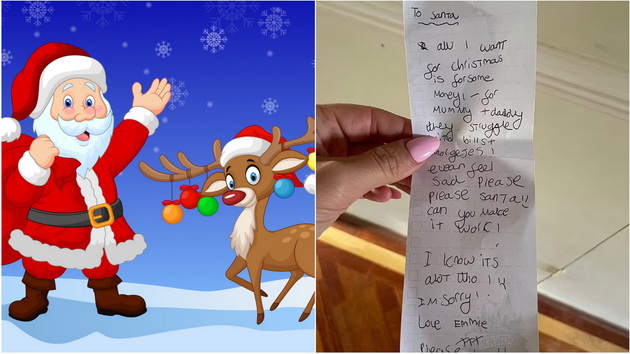 To Santa
all I want
for christmas
is for some
Money! - for
Mummy + daddy
they struggle
bills +
morgejes!
I evean feel
sad Please
please santa!!
can you make
it work!
I know its
alot tho!
I'm sorry!
Love Emmie
PPP
Please